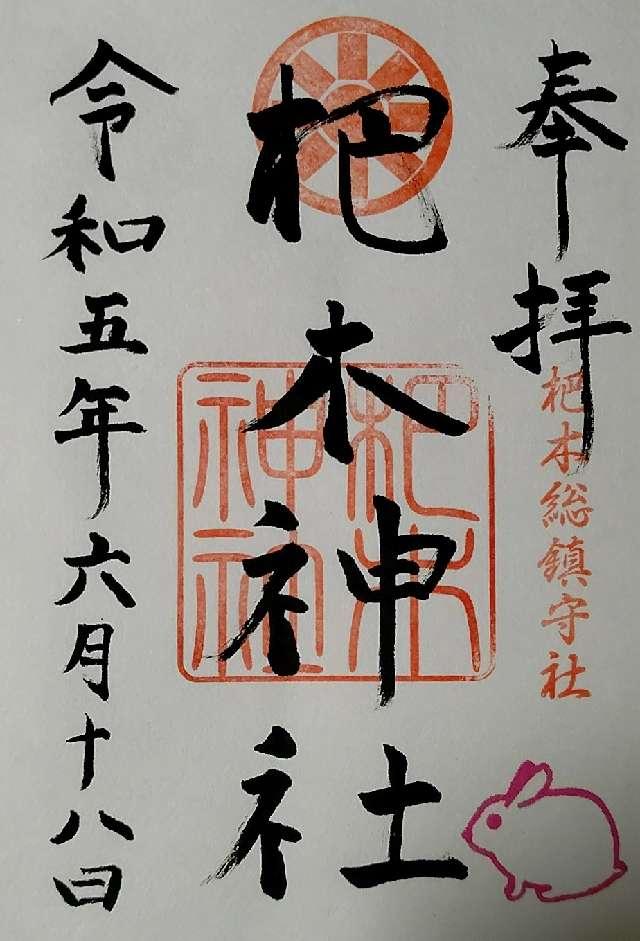 奉拝
杷木総鎮守社
杷木神社
杷木神社
令和五年六月十八日